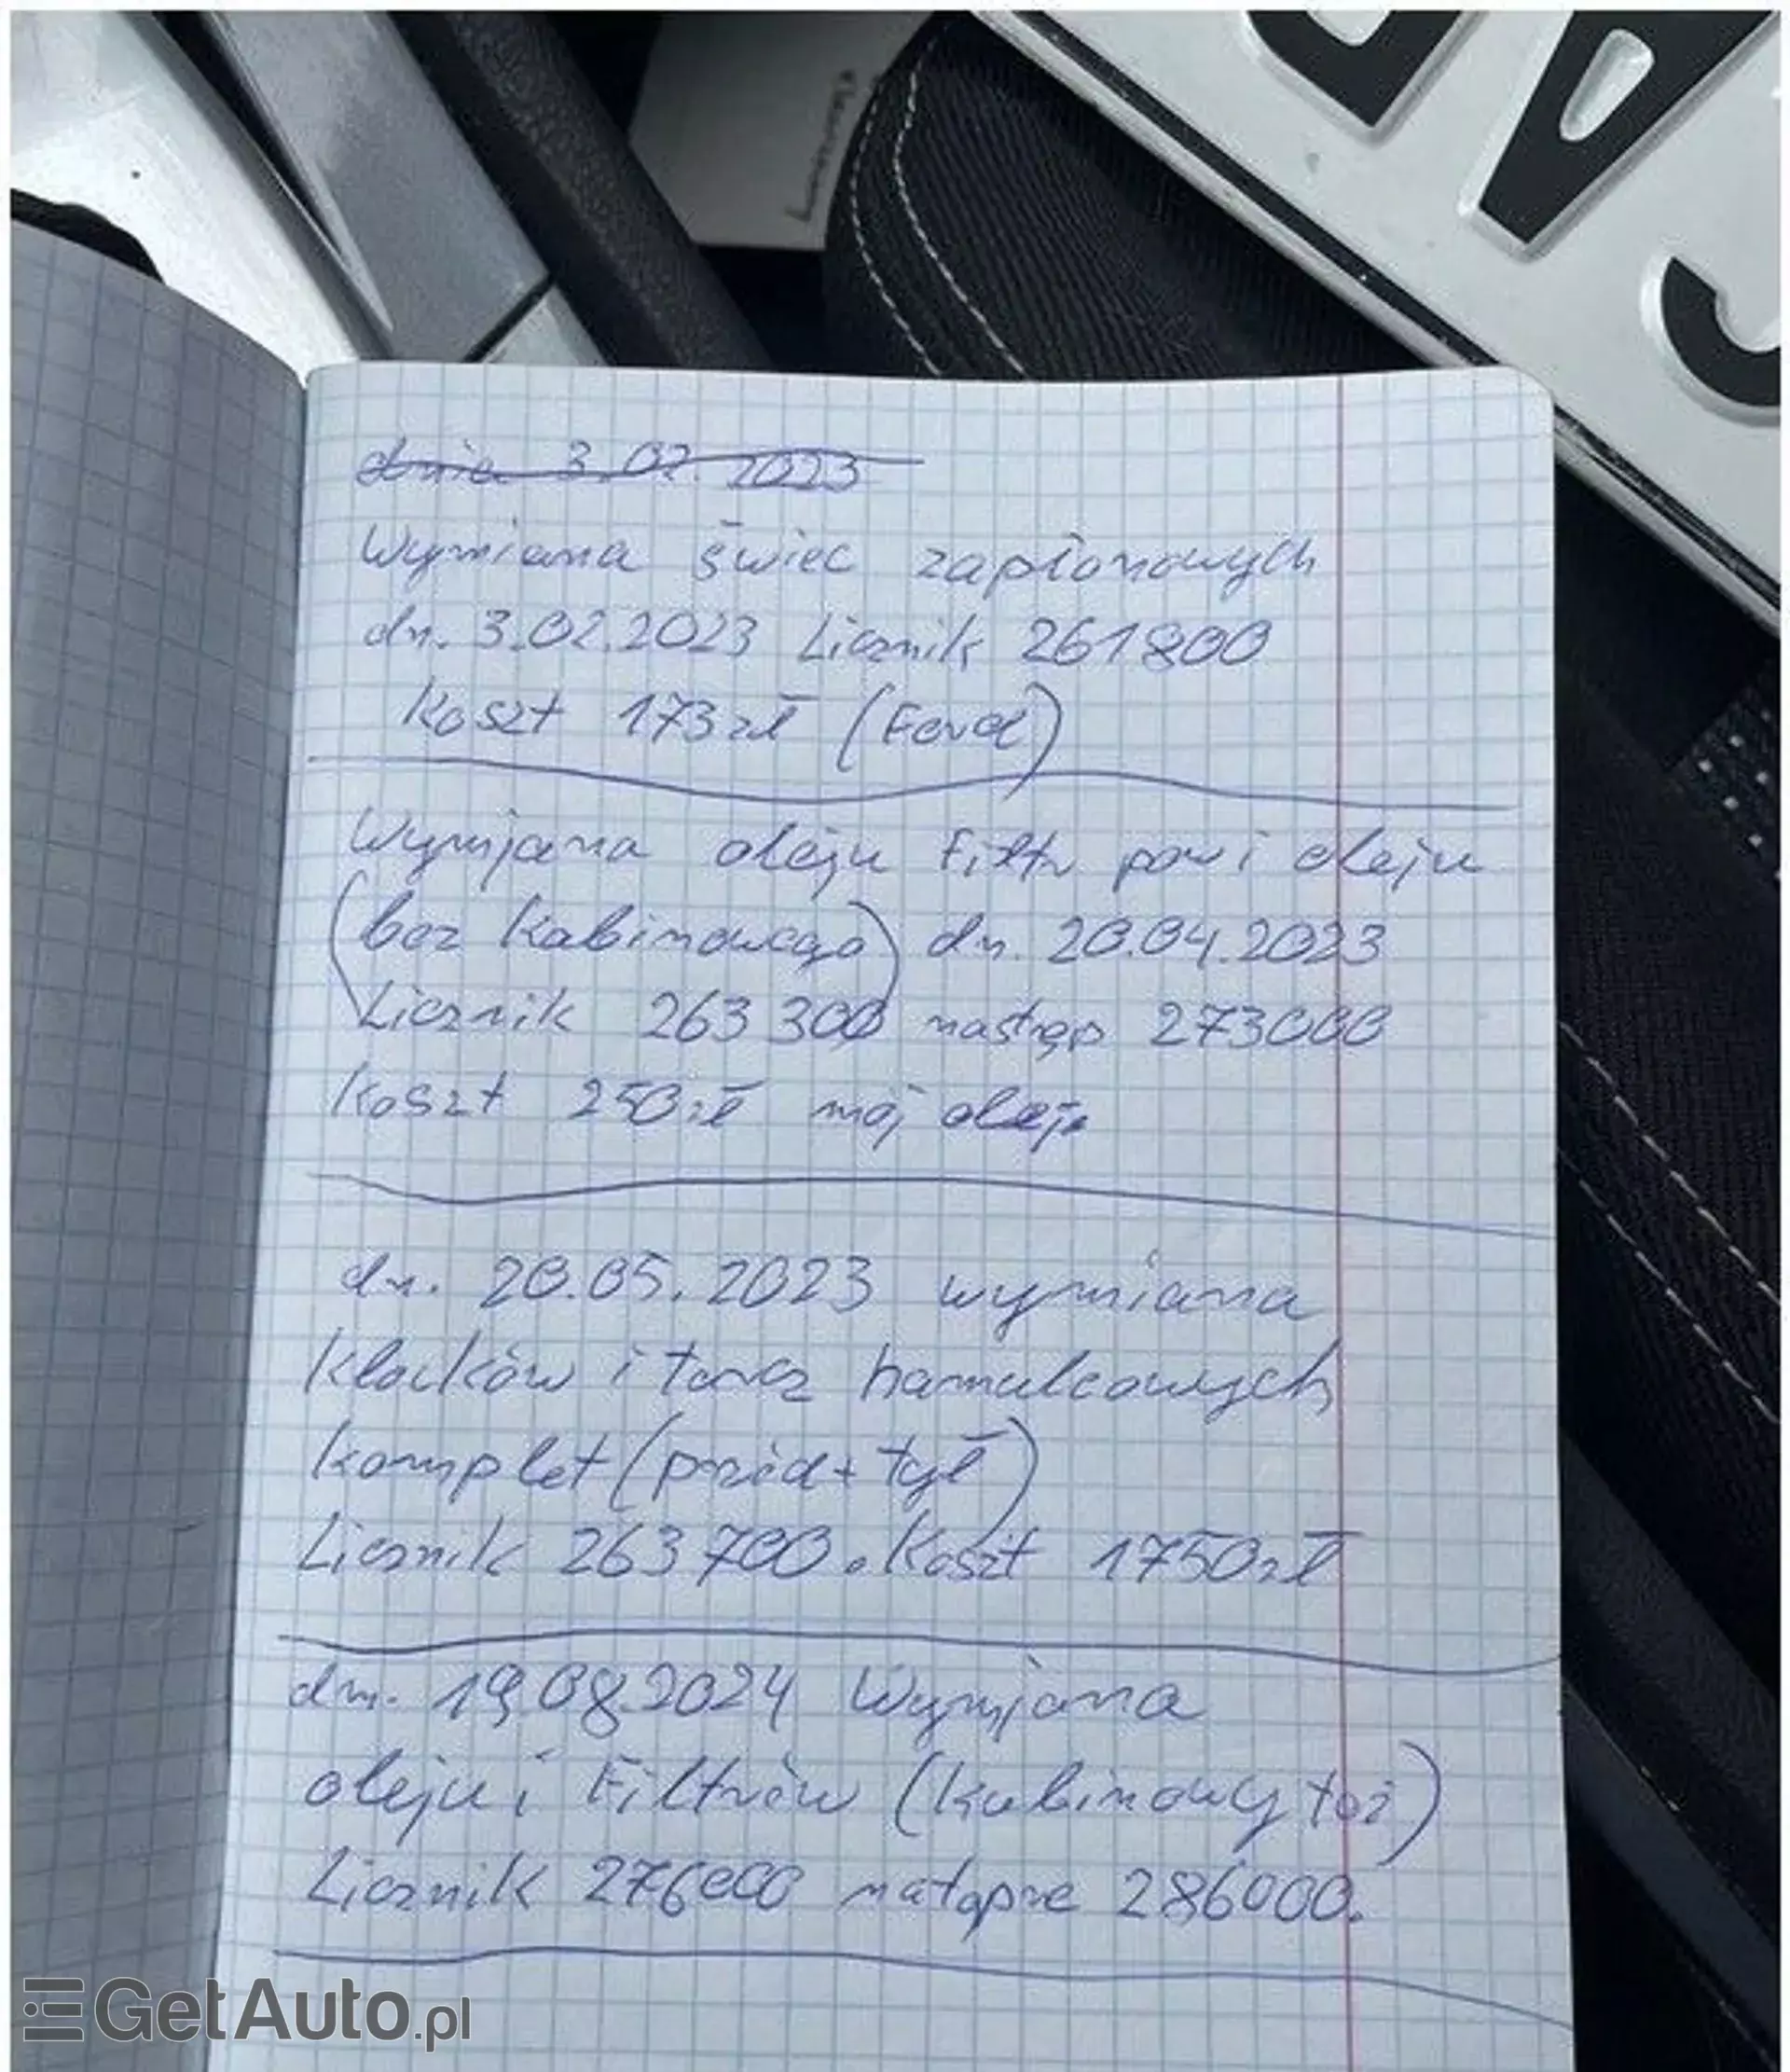 dnia 3.02.2023
Wymiana świec zapłonowych
dn. 3.02.2023 Licznik 261800
Koszt 173zł (Ford)
Wymjana oleju Filtr pow i oleju
(bez Kabinowego) dn. 20.04.2023
Licznik 263300 następ 273000
Koszt 250zł mój olej
dn. 20.05.2023 wymiana
Klocków i tarcz hamulcowych
Komplet (przód + tył)
Licznik 263700. Koszt 1750zł
dn. 19.08.2024 Wymjana
oleju i Filtrów (Kabinowy też)
Licznik 276000 natąpne 286000.
GetAuto.pl